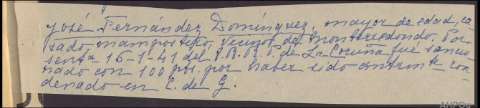 José Fernández Domínguez, mayor de edad, ca
sado, mampostero, vecino de Montrredondo. Por
senta 16-1-41 del T.R.R.P. de La Coruña fué sancio
nado con 100 pts. por haber sido con
denado en C. de G.